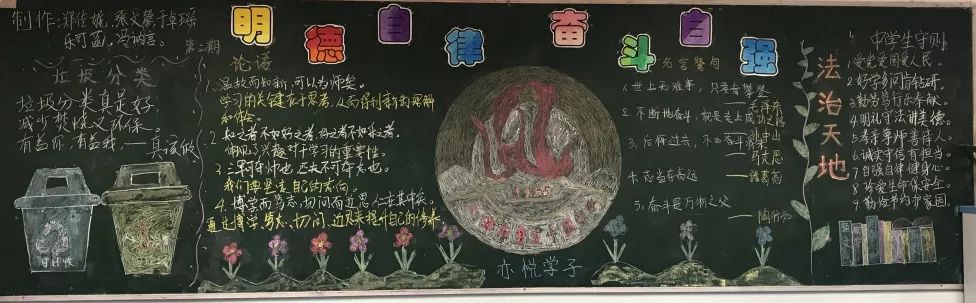 明德自律奋斗自强
制作:郑佳妮,张文馨于卓瑶
乐可函,冯讷言。
第二期
垃圾分类
垃圾分类真是好,
减少焚烧又环保。
有益你,有益我,
可回收
论语
1、温故而知新,可以为师矣。
学习的关键在于思考,从而得到新的理解
和体会。
2、知之者不如好之者,好之者不如乐之者。
体现了兴趣对于学习的重要性。
3、三军可夺帅也,匹夫不可夺志也。
我们要坚定自己的志向。
4、博学而笃志,切问而近思,仁在其中矣。
通过博学、笃志、切问、近思来提升自己的修养。
亦悦学子
名言警句
1、世上无难事,只要肯登攀
——毛泽东
2、不断地奋斗,就是走上成功之路
——孙中山
——马克思
4、志当存高远
——诸葛亮
5、奋斗是万物之父
——陶行知
法治天地
中学生守则
1.爱党爱国爱人民。
2.好学多问肯钻研。
3.勤劳笃行乐奉献。
4.明礼守法讲美德。
5.孝亲尊师善待人。
6.诚实守信有担当。
7.自强自律健身心。
8.珍爱生命保安全。
9.勤俭节约护家园。